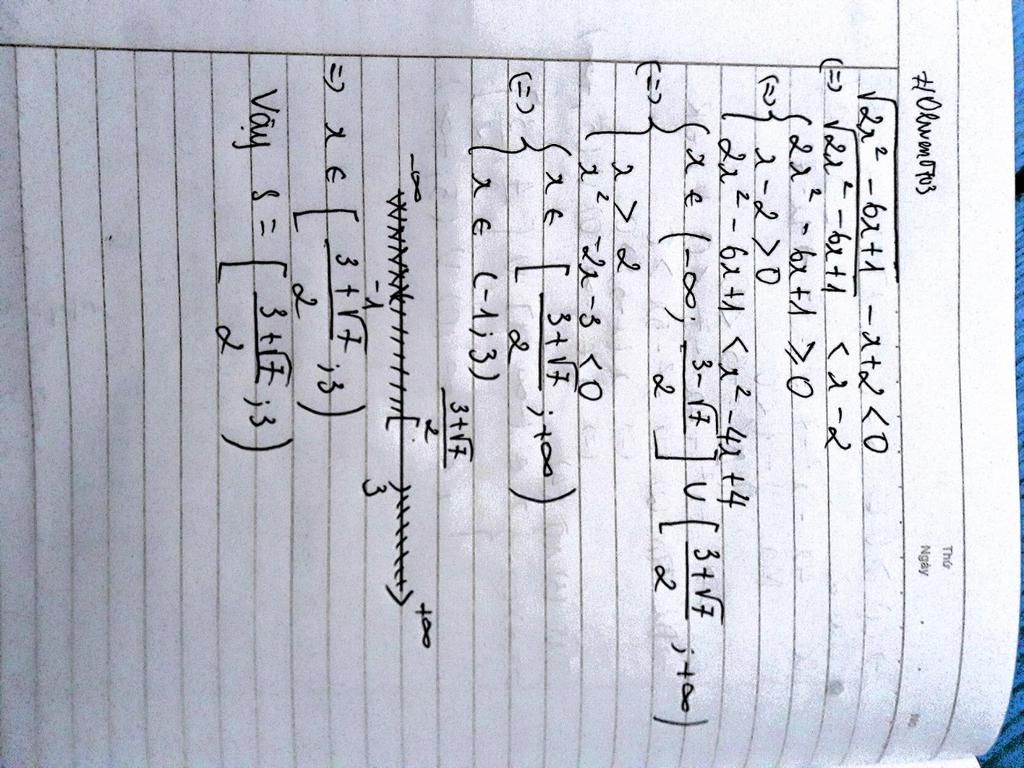 Thứ
Ngày
√(2x² - 6x + 1) - x + 2 < 0
(=) √(2x² - 6x + 1) < x - 2
(=) { 2x² - 6x + 1 ≥ 0
x - 2 > 0
2x² - 6x + 1 < x² - 4x + 4
(=) { x ∈ (-∞; (3 - √7)/2] ∪ [(3 + √7)/2; +∞)
x > 2
x² - 2x - 3 < 0
(=) { x ∈ [(3 + √7)/2; +∞)
x ∈ (-1; 3)
-∞ -1 (3 + √7)/2 3 +∞
=) x ∈ [(3 + √7)/2; 3)
Vậy S = [(3 + √7)/2; 3)